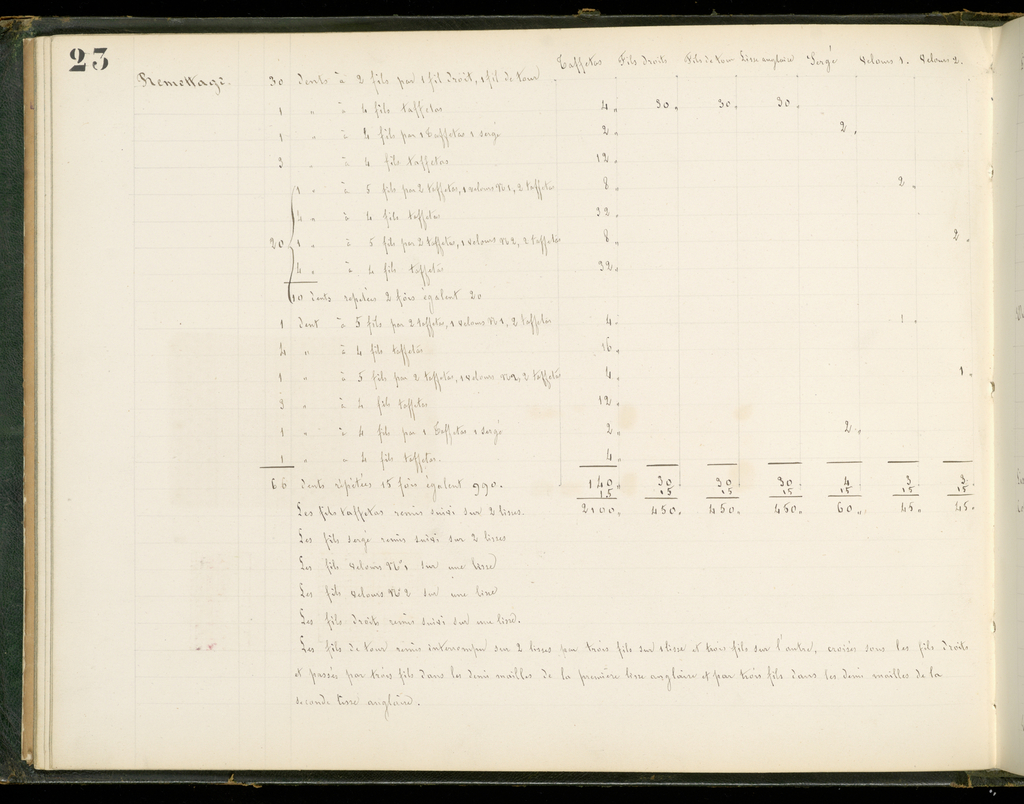 23
Taffetas Fils droits Fils de tour Lisse anglaise Sergé Velours 1. Velours 2.
Remettage. 30 dents à 2 fils par 1 fil droit, 1 fil de tour
1 " à 4 fils taffetas 4 " 30 " 30 " 30 "
1 " à 4 fils par 1 Taffetas 1 sergé 2 " 2 "
3 " à 4 fils taffetas 12 "
1 " à 5 fils par 2 taffetas, 1 velours N1, 2 taffetas 8 " 2 "
4 " à 4 fils taffetas 32 "
20 1 " à 5 fils par 2 taffetas, 1 velours N2, 2 taffetas 8 " 2 "
4 " à 4 fils taffetas 32 "
10 dents répétées 2 fois égalent 20
1 dent à 5 fils par 2 taffetas, 1 velours N1, 2 taffetas 4 " 1 "
4 " à 4 fils taffetas 16 "
1 " à 5 fils par 2 taffetas, 1 velours N2, 2 taffetas 4 " 1 "
3 " à 4 fils taffetas 12 "
1 " à 4 fils par 1 Taffetas 1 sergé 2 " 2 "
1 " à 4 fils taffetas. 4 "
66 dents répétées 15 fois égalent 990. 140 " 30 30 30 4 3 3
15 15 15 15 15 15 15
Les fils taffetas remis suivi sur 2 lisses. 2100 " 450 " 450 " 450 " 60 " 45 " 45 "
Les fils sergé remis suivi sur 2 lisses
Les fils velours N°1 sur une lisse
Les fils velours N°2 sur une lisse
Les fils droits remis suivi sur une lisse.
Les fils de tour remis interrompu sur 2 lisses par trois fils sur 1 lisse et trois fils sur l'autre, croisés sous les fils droits
et passés par trois fils dans les demi mailles de la première lisse anglaise et par trois fils dans les demi mailles de la
seconde lisse anglaise.